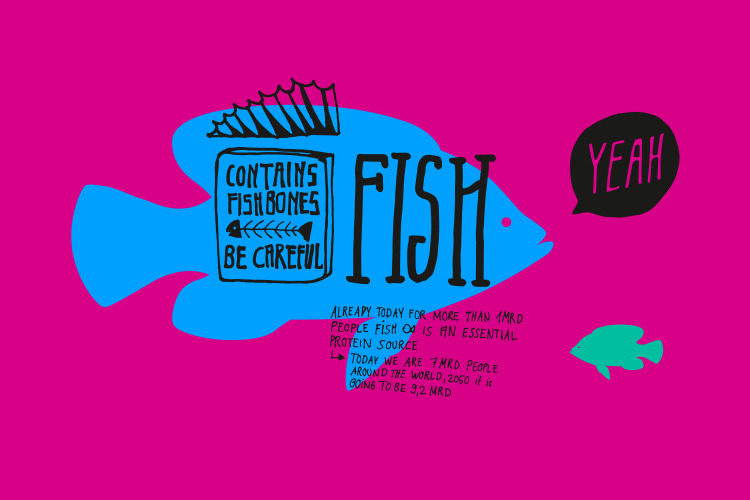 CONTAINS
FISHBONES
BE CAREFUL
FISH
YEAH
ALREADY TODAY FOR MORE THAN 1MRD
PEOPLE FISH IS AN ESSENTIAL
PROTEIN SOURCE
TODAY WE ARE 7MRD PEOPLE
AROUND THE WORLD, 2050 it is
GOING TO BE 9,2 MRD